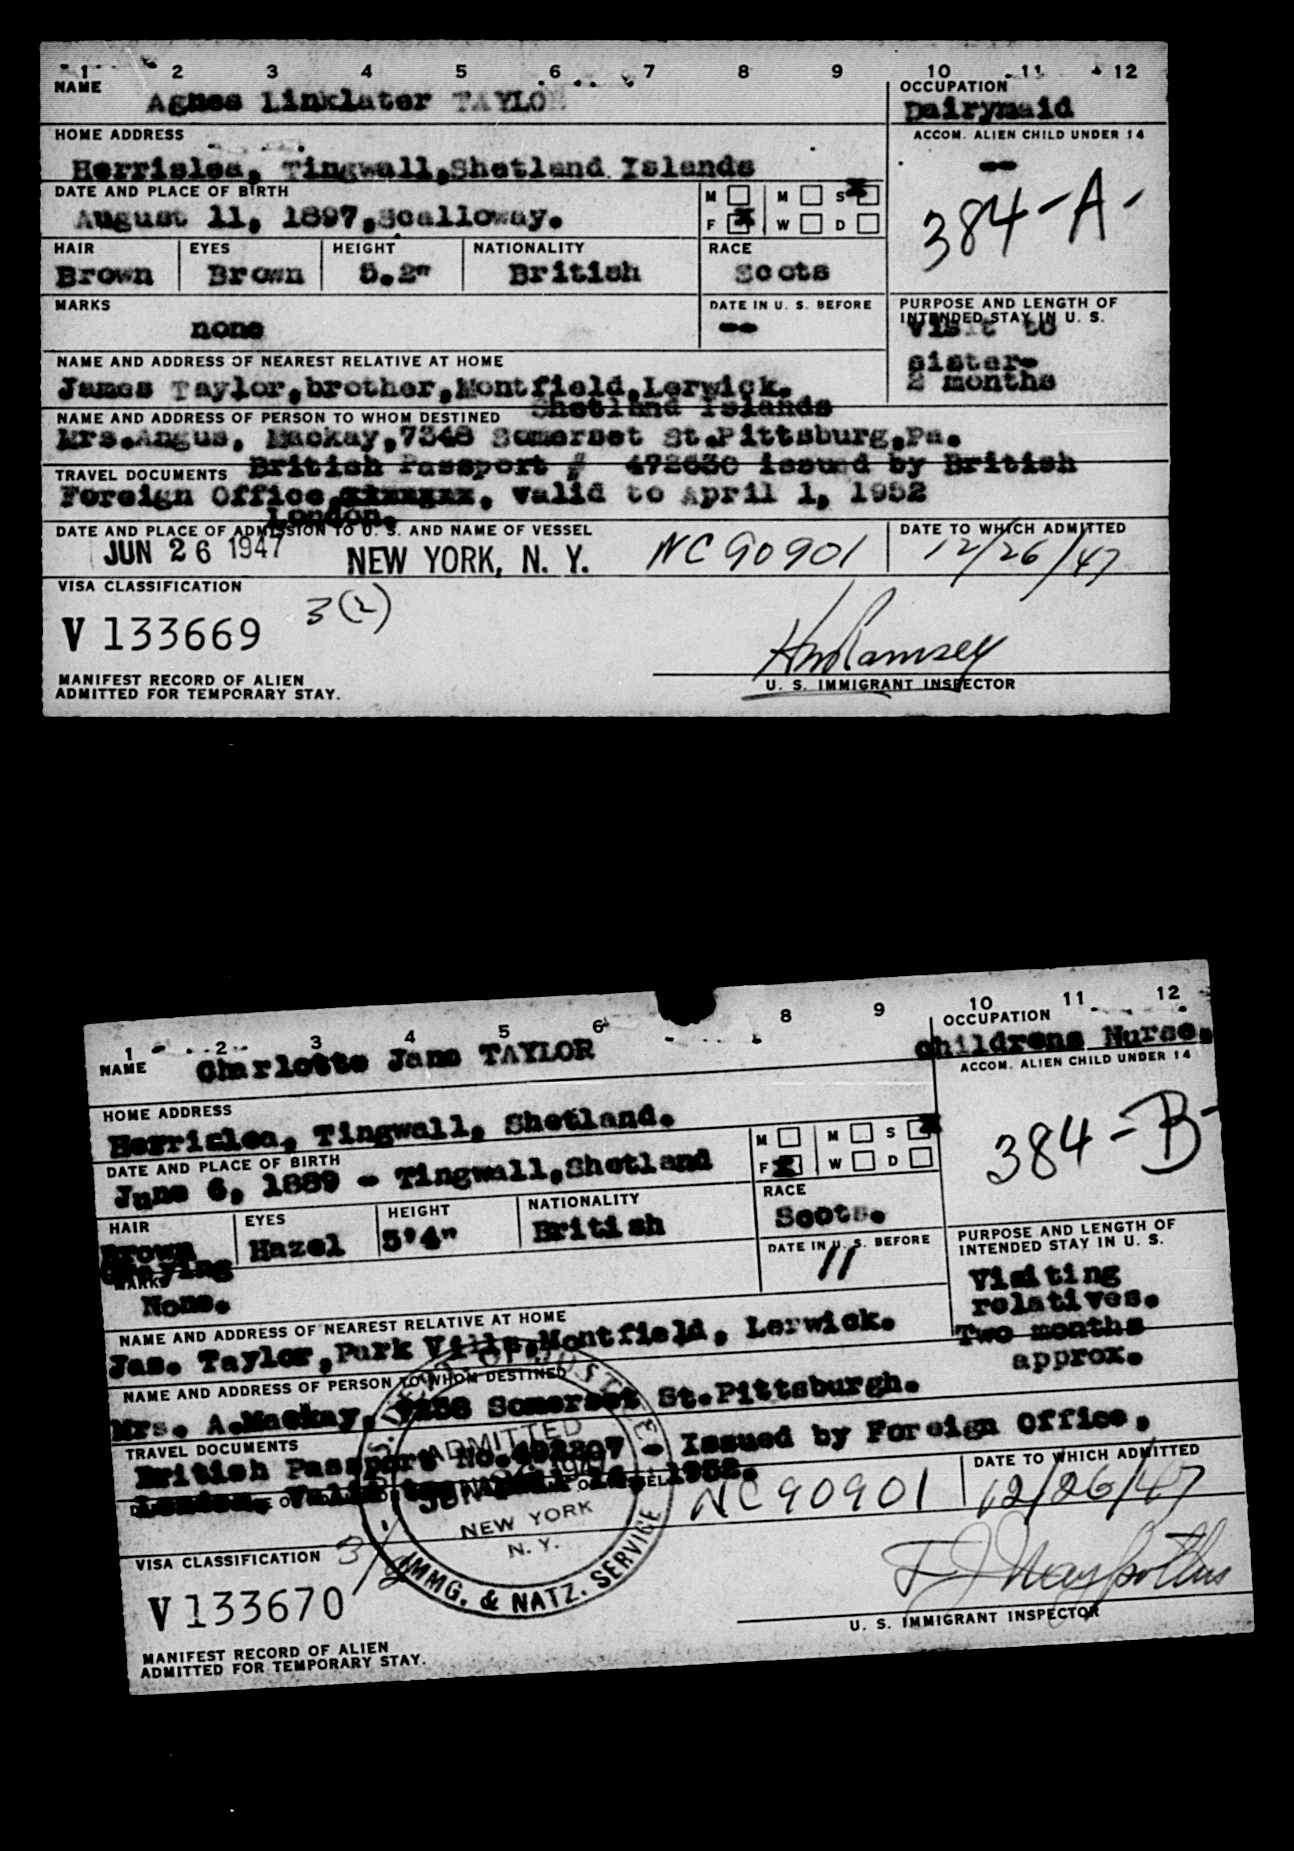 1 2 3 4 5 6 7 8 9 10 11 12
NAME Agnes Linklater TAYLOR
OCCUPATION
Dairymaid
HOME ADDRESS
Herrislea, Tingwall,Shetland Islands
ACCOM. ALIEN CHILD UNDER 14
--
384-A-
DATE AND PLACE OF BIRTH
August 11, 1897,Scalloway.
M M S X
F X W D
HAIR EYES HEIGHT NATIONALITY RACE
Brown Brown 5.2" British Scots
MARKS
none
DATE IN U. S. BEFORE
--
PURPOSE AND LENGTH OF
INTENDED STAY IN U. S.
Visit to
sister-
2 months
NAME AND ADDRESS OF NEAREST RELATIVE AT HOME
James Taylor,brother,Montfield,Lerwick.
Shetland Islands
NAME AND ADDRESS OF PERSON TO WHOM DESTINED
Mrs.Angus, Mackay,7348 Somerset St.Pittsburg,Pa.
TRAVEL DOCUMENTS British Passport # issued by British
Foreign Office, valid to April 1, 1952
London.
DATE AND PLACE OF ADMISSION TO U. S. AND NAME OF VESSEL
JUN 26 1947 NEW YORK, N. Y. NC 90901
DATE TO WHICH ADMITTED
12/26/47
VISA CLASSIFICATION
3(2)
V 133669
HW Ramsey
U. S. IMMIGRANT INSPECTOR
MANIFEST RECORD OF ALIEN
ADMITTED FOR TEMPORARY STAY.
1 2 3 4 5 6 8 9 10 11 12
NAME Charlotte Jane TAYLOR
OCCUPATION
Childrens Nurse.
HOME ADDRESS
Herrislea, Tingwall, Shetland.
ACCOM. ALIEN CHILD UNDER 14
384-B-
DATE AND PLACE OF BIRTH
June 6, 1889 - Tingwall,Shetland
M M S X
F X W D
HAIR EYES HEIGHT NATIONALITY RACE
Brown Hazel 5'4" British Scots.
Graying
MARKS
None.
DATE IN U. S. BEFORE
11
PURPOSE AND LENGTH OF
INTENDED STAY IN U. S.
Visiting
relatives.
Two months
approx.
NAME AND ADDRESS OF NEAREST RELATIVE AT HOME
Jas. Taylor,Park Villa,Montfield, Lerwick.
NAME AND ADDRESS OF PERSON TO WHOM DESTINED
Mrs. A.Mackay, Somerset St.Pittsburgh.
TRAVEL DOCUMENTS
British Passport No. - Issued by Foreign Office,
London. Valid
ADMITTED
NEW YORK
N. Y.
IMMG. & NATZ. SERVICE
NC 90901
DATE TO WHICH ADMITTED
12/26/47
VISA CLASSIFICATION
V 133670
U. S. IMMIGRANT INSPECTOR
MANIFEST RECORD OF ALIEN
ADMITTED FOR TEMPORARY STAY.